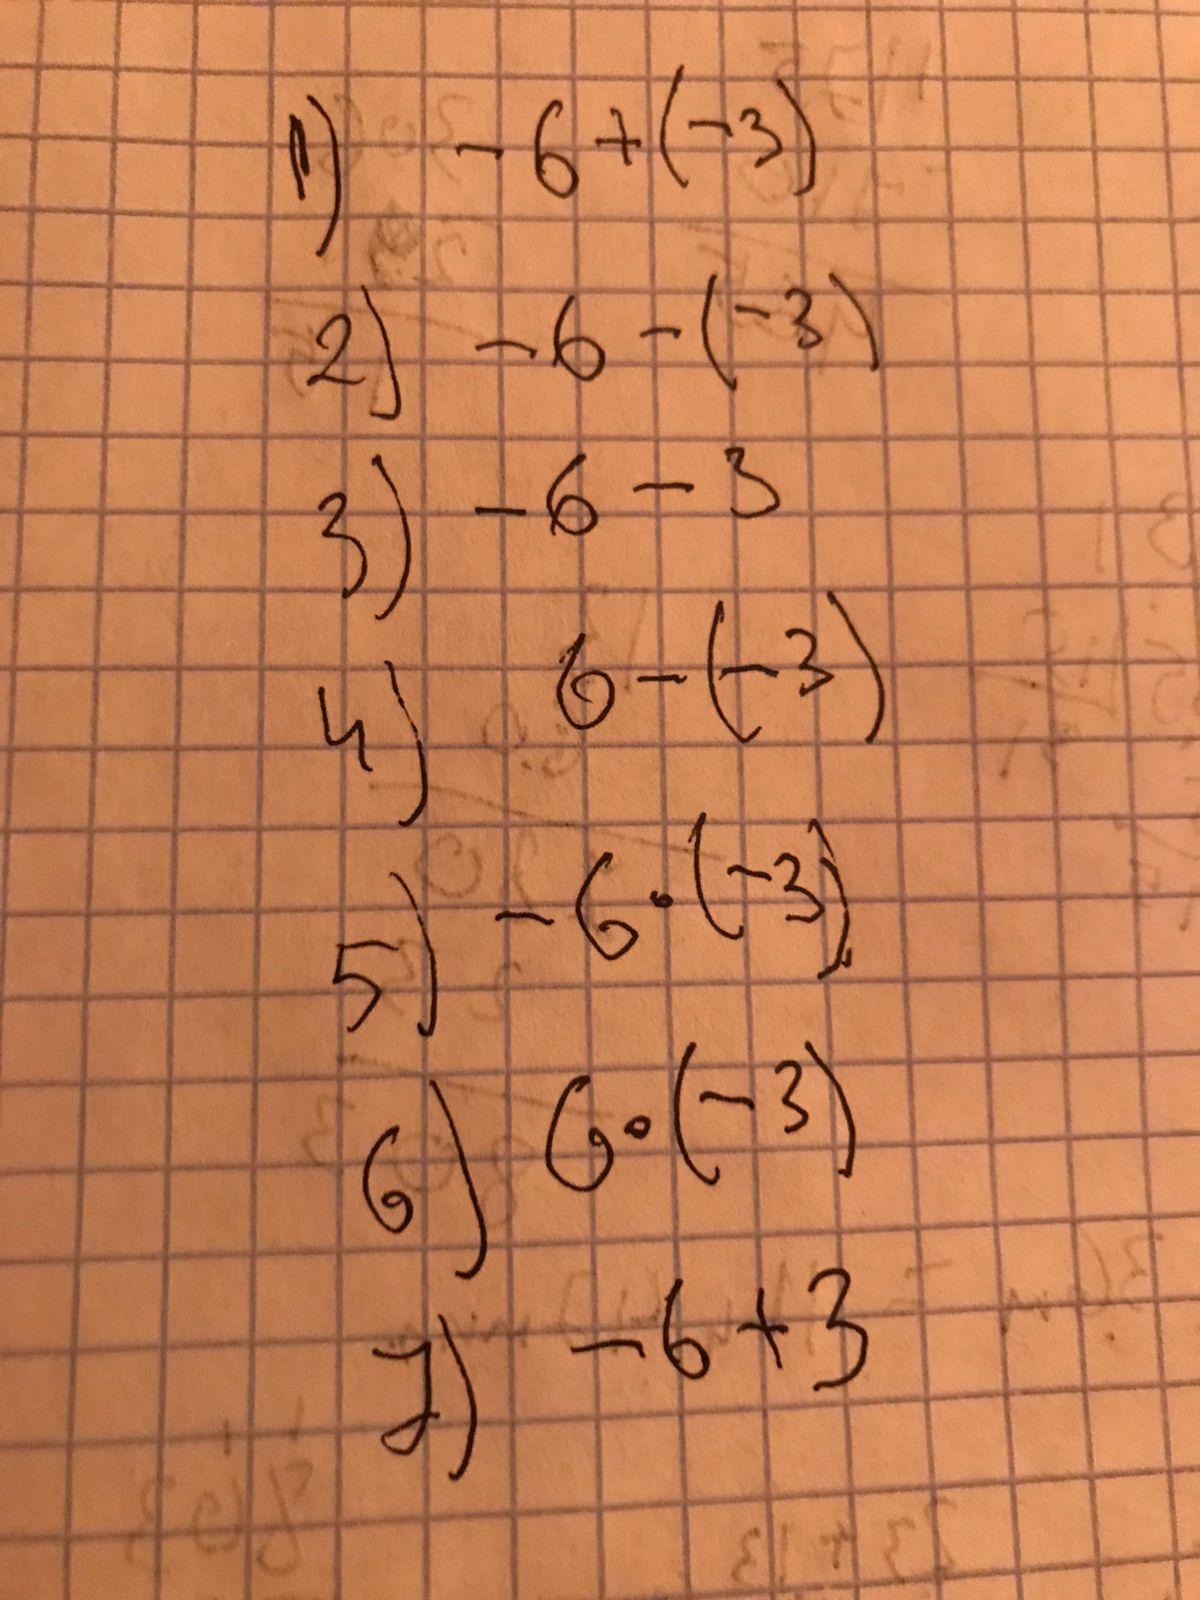 1) -6+(-3)
2) -6-(-3)
3) -6-3
4) 6-(-3)
5) -6·(-3)
6) 6·(-3)
7) -6+3